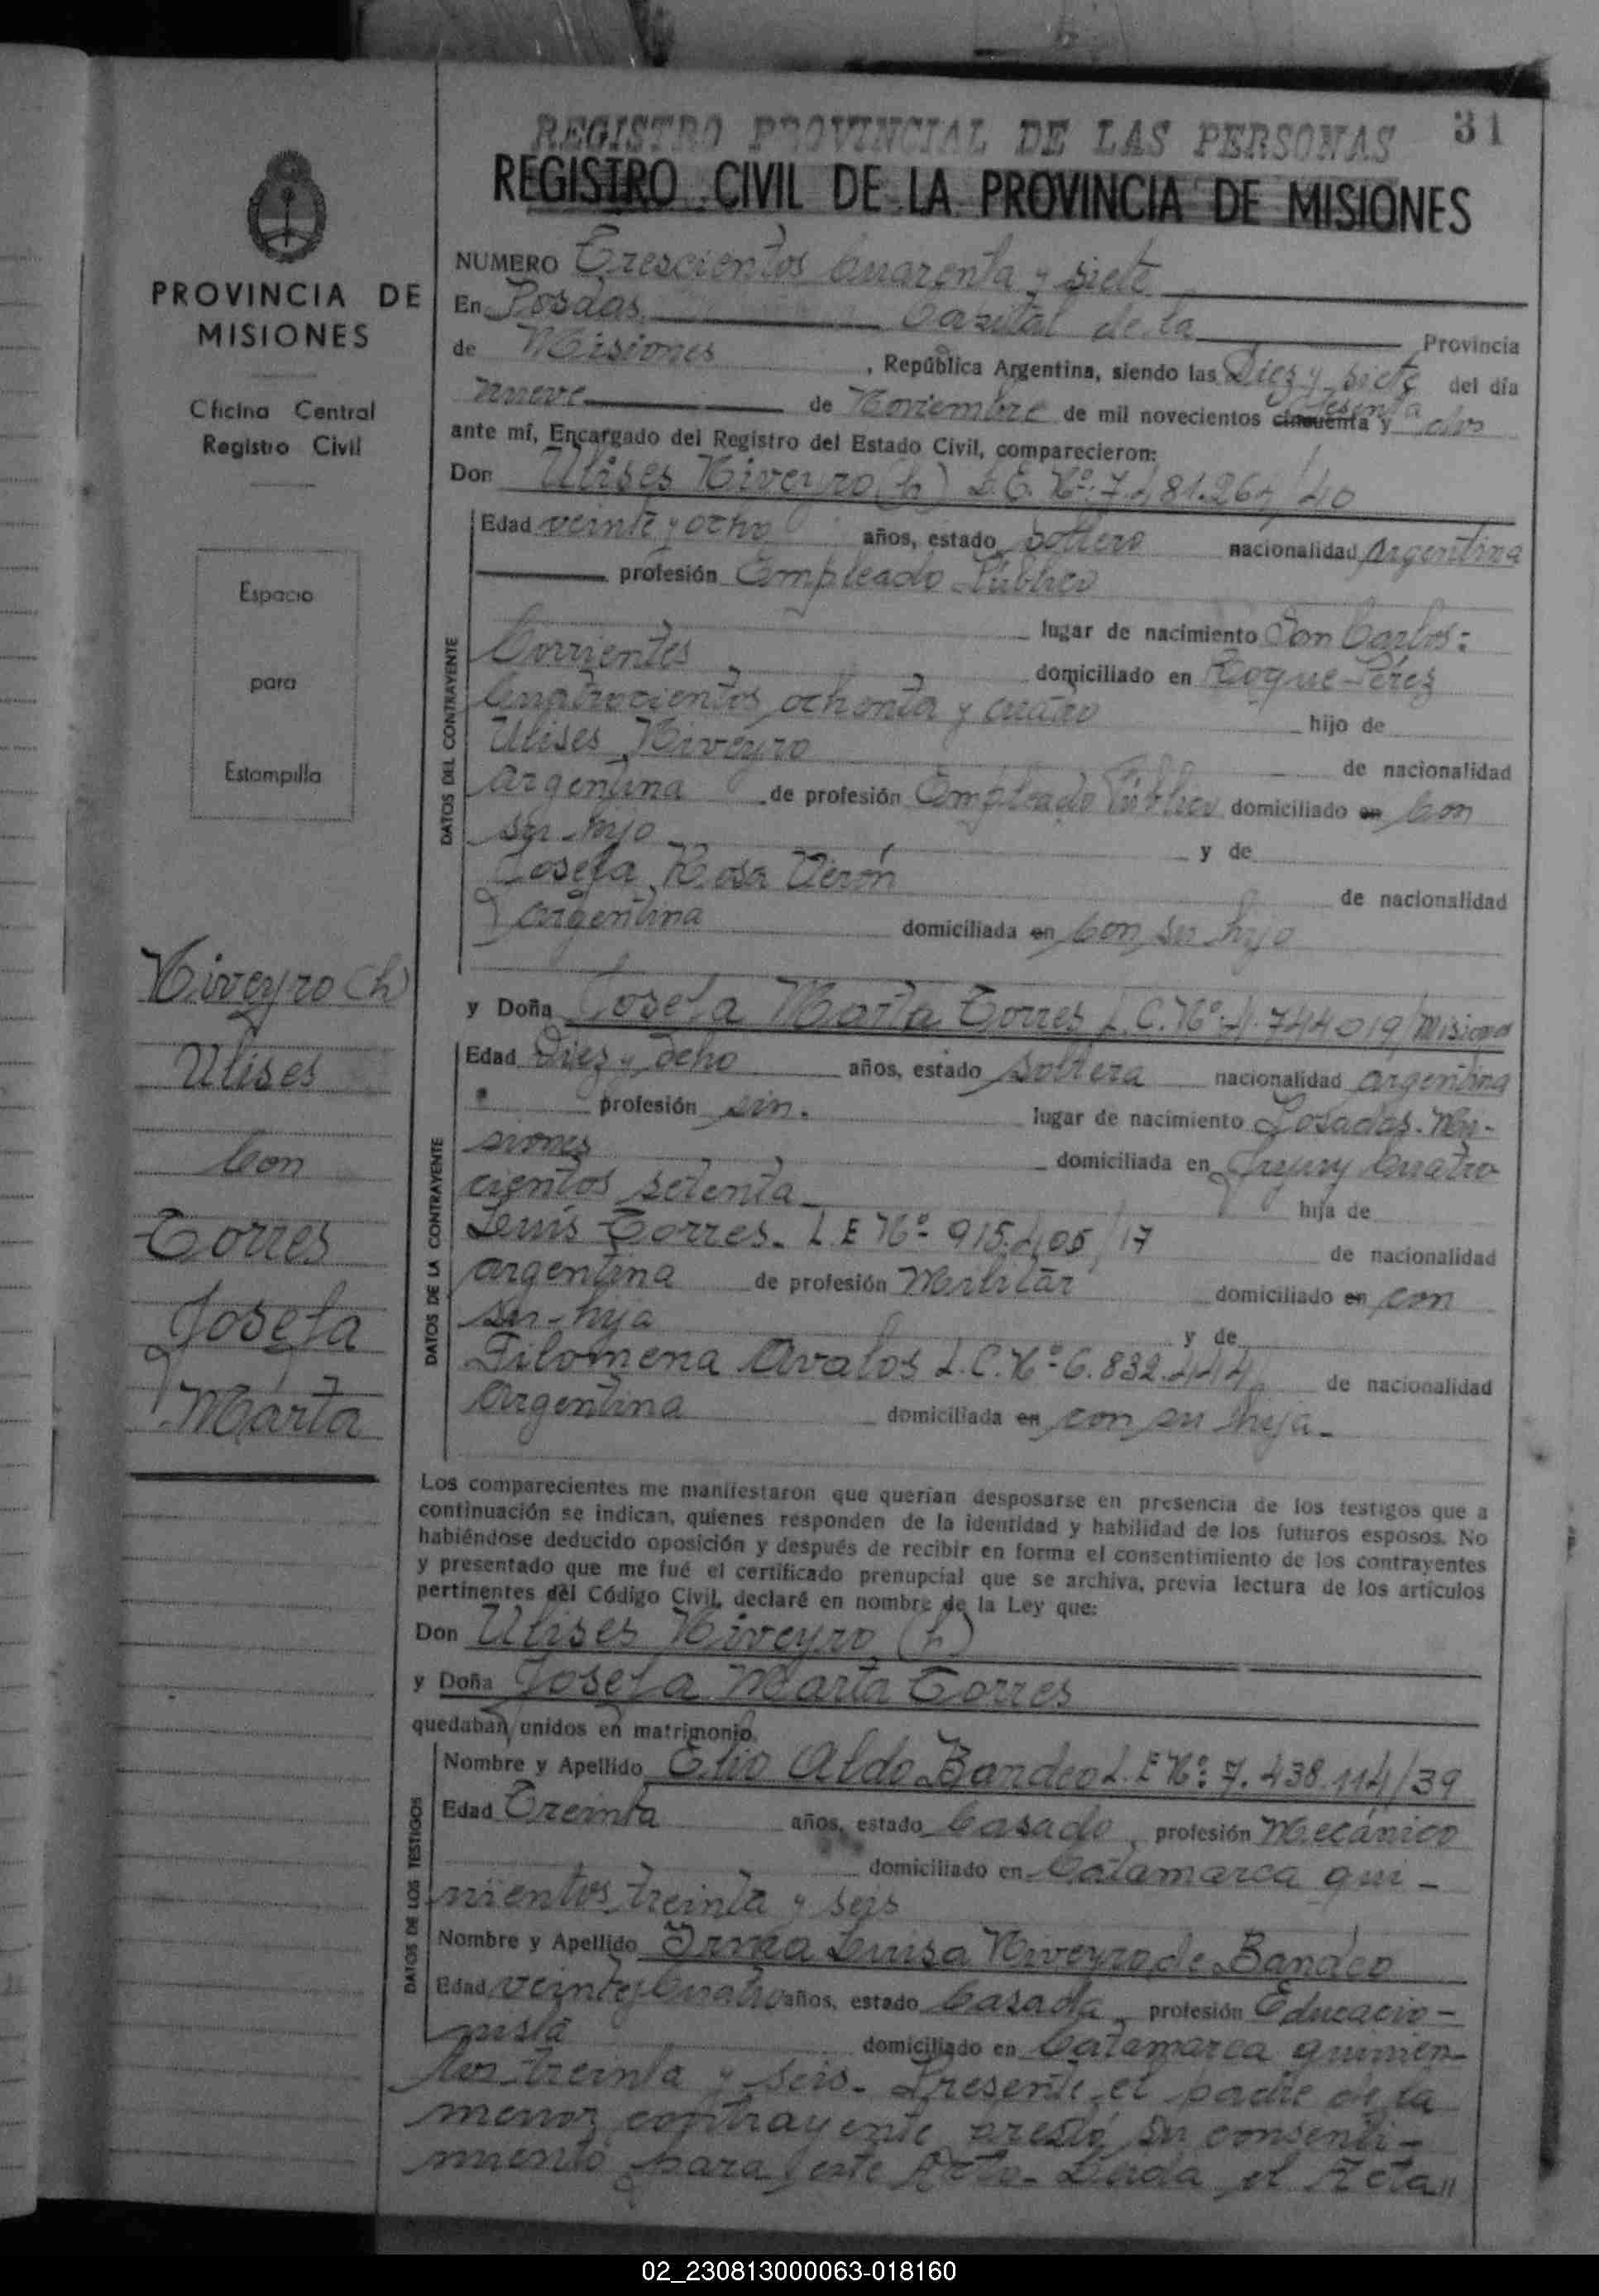 REGISTRO PROVINCIAL DE LAS PERSONAS 31
REGISTRO CIVIL DE LA PROVINCIA DE MISIONES
PROVINCIA DE
MISIONES
Oficina Central
Registro Civil
Espacio
para
Estampilla
Niveyro (h)
Ulises
Con
Torres
Josefa
Marta
NUMERO Trescientos Cuarenta y siete
En Posadas Capital de la Provincia
de Misiones, República Argentina, siendo las Diez y siete del día
nueve de Noviembre de mil novecientos cincuenta y sesenta dos
ante mí, Encargado del Registro del Estado Civil, comparecieron:
Don Ulises Niveyro (h) L.E. Nº: 7.481.264/40
DATOS DEL CONTRAYENTE
Edad veinte y ocho años, estado soltero nacionalidad Argentina
profesión Empleado Público
lugar de nacimiento San Carlos:
Corrientes domiciliado en Roque Pérez
Cuatrocientos ochenta y cuatro hijo de
Ulises Niveyro de nacionalidad
argentina de profesión Empleado Público domiciliado en Con
su hijo y de
Josefa Rosa Verón de nacionalidad
argentina domiciliada en Con su hijo
y Doña Josefa Marta Torres L.C. Nº: 4.744019/Misiones
DATOS DE LA CONTRAYENTE
Edad Diez y ocho años, estado soltera nacionalidad argentina
profesión sin. lugar de nacimiento Posadas. Mi-
siones domiciliada en Jujuy Cuatro
cientos setenta hija de
Luis Torres. L.E Nº 915.405/17 de nacionalidad
argentina de profesión Militar domiciliado en con
su hija y de
Filomena Avalos L.C. Nº 6.832.444 de nacionalidad
Argentina domiciliada en con su hija.
Los comparecientes me manifestaron que querían desposarse en presencia de los testigos que a
continuación se indican, quienes responden de la identidad y habilidad de los futuros esposos. No
habiéndose deducido oposición y después de recibir en forma el consentimiento de los contrayentes
y presentado que me fué el certificado prenupcial que se archiva, previa lectura de los artículos
pertinentes del Código Civil, declaré en nombre de la Ley que:
Don Ulises Niveyro (h)
y Doña Josefa Marta Torres
quedaban unidos en matrimonio.
DATOS DE LOS TESTIGOS
Nombre y Apellido Elio Aldo Bandeo L.E Nº: 7.438.114/39
Edad Treinta años, estado Casado, profesión Mecánico
domiciliado en Catamarca qui-
nientos treinta y seis
Nombre y Apellido Irma Luisa Niveyro de Bandeo
Edad veinte y Cuatro años, estado Casada, profesión Educacio-
nista domiciliado en Catamarca quinien-
tos treinta y seis. Presente el padre de la
menor contrayente prestó su consenti-
miento para este Acto. Leída el Acta
02_230813000063-018160